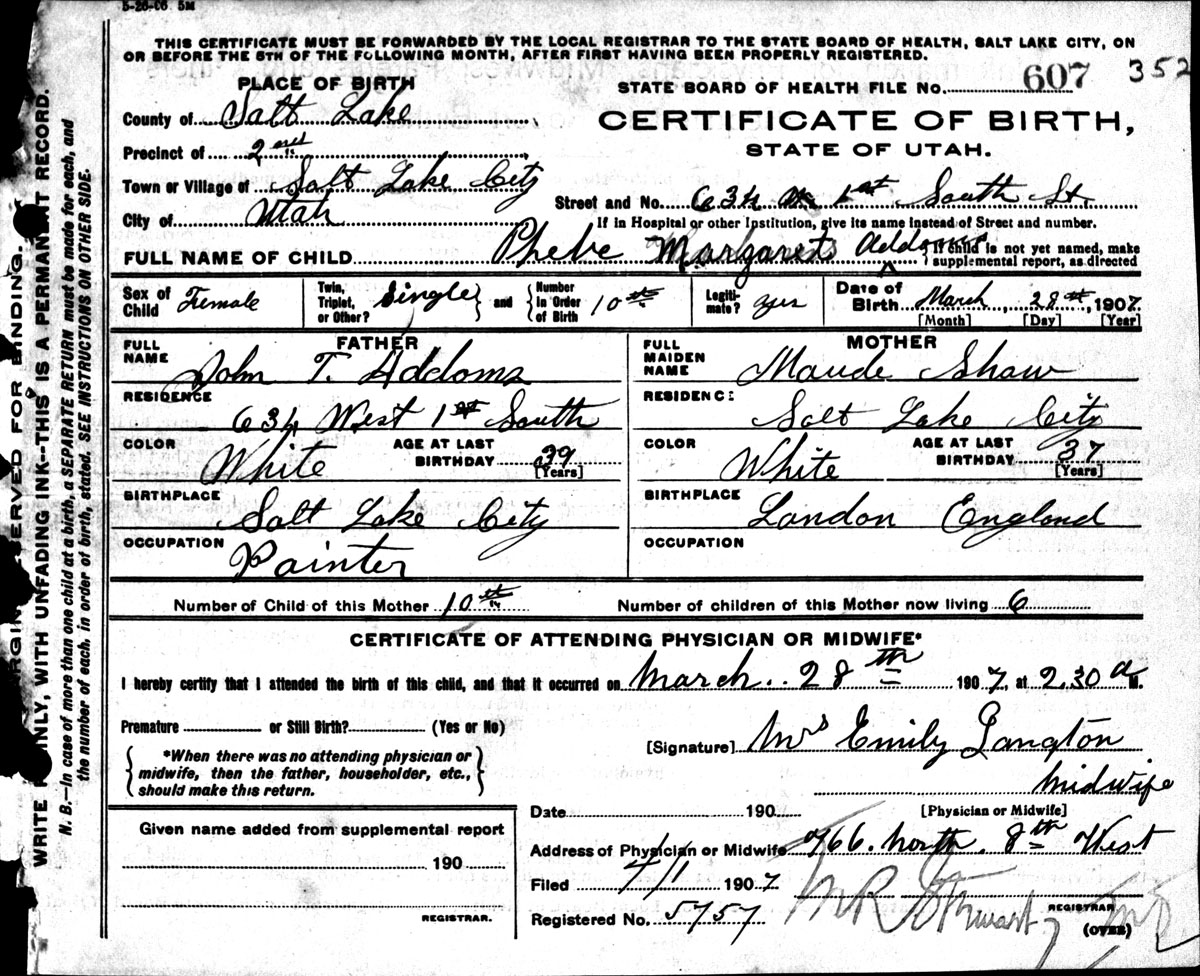 5-26-06 5M
THIS CERTIFICATE MUST BE FORWARDED BY THE LOCAL REGISTRAR TO THE STATE BOARD OF HEALTH, SALT LAKE CITY, ON
OR BEFORE THE 5TH OF THE FOLLOWING MONTH, AFTER FIRST HAVING BEEN PROPERLY REGISTERED.
PLACE OF BIRTH
STATE BOARD OF HEALTH FILE No. 607 352
County of Salt Lake
CERTIFICATE OF BIRTH,
STATE OF UTAH.
Precinct of 2nd
Town or Village of Salt Lake City
Street and No. 634 W 1st South St.
City of Utah
If in Hospital or other Institution, give its name instead of Street and number.
FULL NAME OF CHILD Phebe Margarets Addoms
is not yet named, make
supplemental report, as directed
Sex of Child Female
Twin, Triplet, or Other? Single and Number In Order of Birth 10th
Legiti-mate? yes
Date of Birth March 28th, 1907
[Month] [Day] [Year]
FATHER
FULL NAME John T. Addoms
RESIDENCE 634 West 1st South
COLOR White AGE AT LAST BIRTHDAY 39 [Years]
BIRTHPLACE Salt Lake City
OCCUPATION Painter
MOTHER
FULL MAIDEN NAME Maude Shaw
RESIDENCE Salt Lake City
COLOR White AGE AT LAST BIRTHDAY 37 [Years]
BIRTHPLACE London England
OCCUPATION
Number of Child of this Mother 10th Number of children of this Mother now living 6
CERTIFICATE OF ATTENDING PHYSICIAN OR MIDWIFE*
I hereby certify that I attended the birth of this child, and that it occurred on March 28th 1907, at 2.30 a M.
Premature or Still Birth? (Yes or No)
[Signature] Mrs Emily Langton
*When there was no attending physician or
midwife, then the father, householder, etc.,
should make this return.
Midwife
[Physician or Midwife]
Date 190
Address of Physician or Midwife 766. North. 8th West
Filed 4/1 1907
Registered No. 5757
Stewart
REGISTRAR
(OVER)
Given name added from supplemental report
190
REGISTRAR.
RESERVED FOR BINDING.
WRITE PLAINLY, WITH UNFADING INK--THIS IS A PERMANENT RECORD.
N. B.—In case of more than one child at a birth, a SEPARATE RETURN must be made for each, and
the number of each, in order of birth, stated. SEE INSTRUCTIONS ON OTHER SIDE.